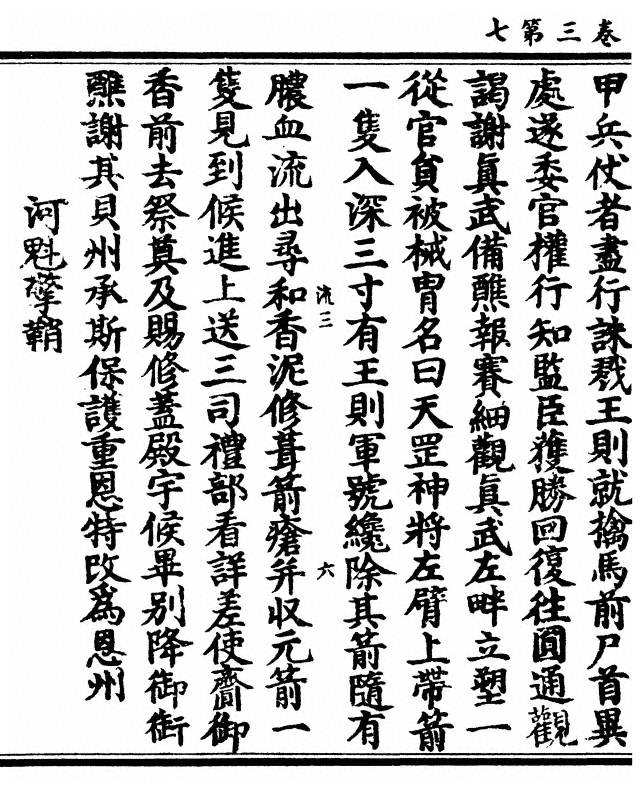 卷三第七
甲兵仗者盡行誅戮王則就擒馬前尸首異
處遂委官權行知監臣獲勝回復往圓通觀
謁謝真武備醮報賽細觀真武左畔立塑一
從官貟被械冑名曰天罡神將左臂上帶箭
一隻入深三寸有王則軍號纔除其箭隨有
流三
六
膿血流出尋和香泥修葺箭瘡并収元箭一
隻見到候進上送三司禮部看詳差使齎御
香前去祭奠及賜修蓋殿宇候畢別降御衘
醮謝其貝州承斯保護重恩特改爲恩州
河魁擎鞘